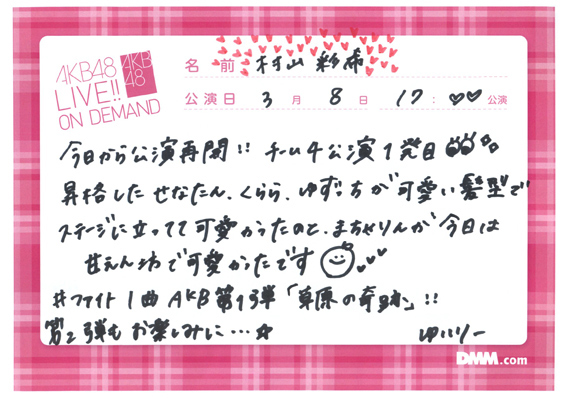 AKB48
LIVE!!
ON DEMAND
AKB
48
名前 村山彩希
公演日 3月 8日 17:♡♡公演
今日から公演再開!! チーム4公演1発目
昇格したせなたん、くらら、ゆずっちが可愛い髪型で
ステージに立ってて可愛かったのと、まちゃりんが今日は
甘えん坊で可愛かったです
#ファイト1曲 AKB第1弾「草原の奇跡」!!
第2弾もお楽しみに…☆ ゆいりー
DMM.com